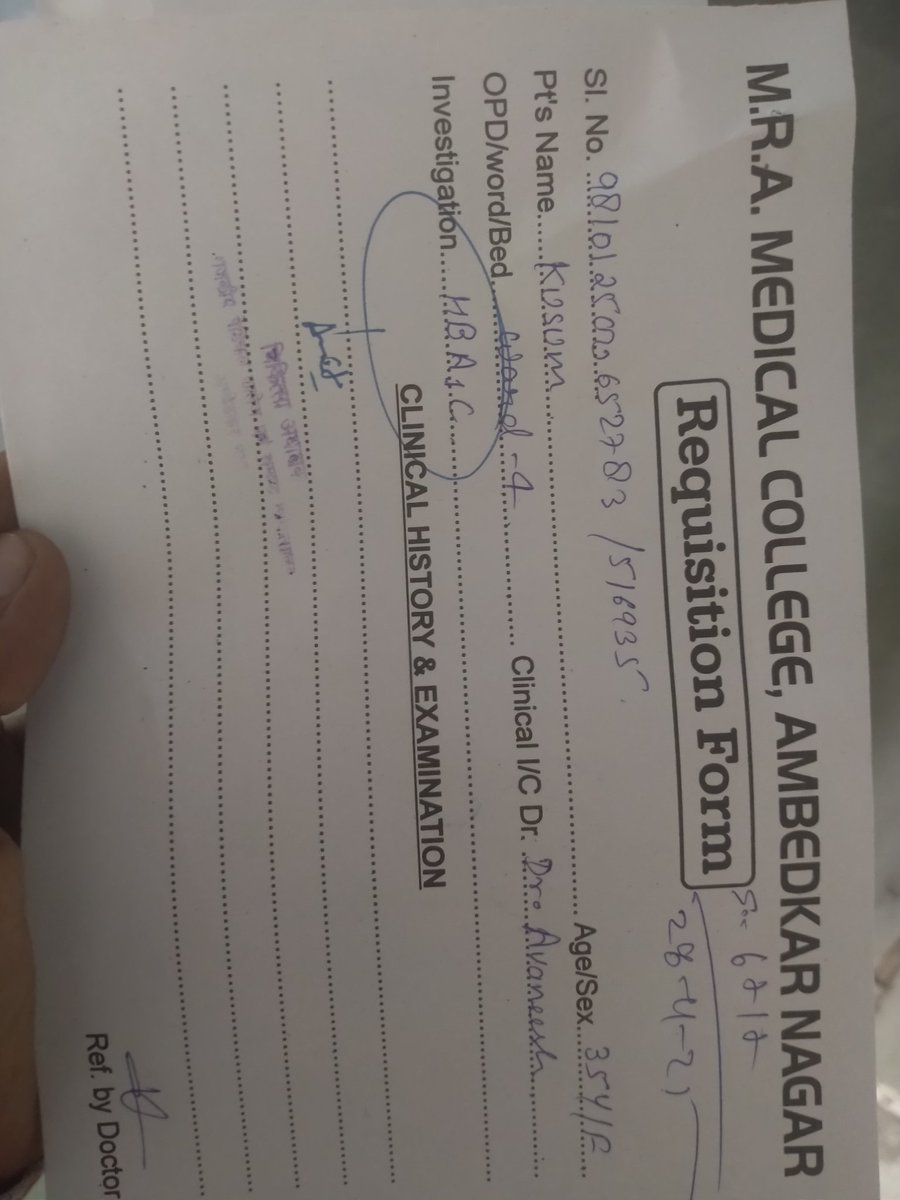 M.R.A. MEDICAL COLLEGE, AMBEDKAR NAGAR
Requisition Form
Sl. No. 98101.25.0020652783 /516935
Pt's Name Kusum Age/Sex 35Y/F
OPD/word/Bed Ward-4 Clinical I/C Dr. Dr. Avaneesh
Investigation H.B.A1.C.
CLINICAL HISTORY & EXAMINATION
चिकित्सा
Ref. by Doctor